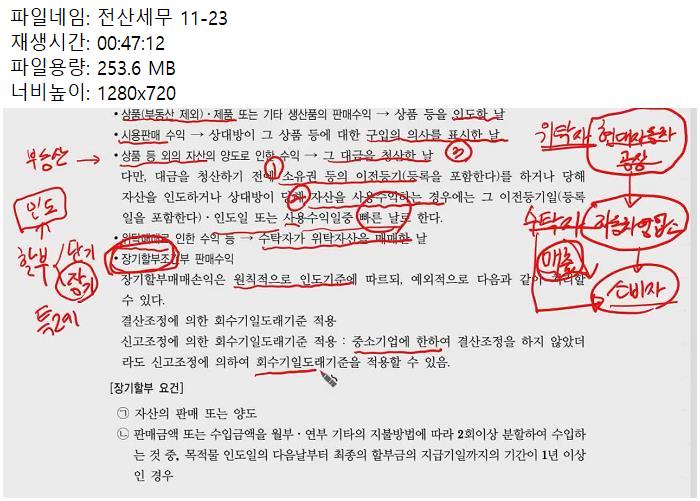 파일네임: 전산세무 11-23
재생시간: 00:47:12
파일용량: 253.6 MB
너비높이: 1280x720
• 상품(부동산 제외)·제품 또는 기타 생산품의 판매수익 → 상품 등을 인도한 날
• 시용판매 수익 → 상대방이 그 상품 등에 대한 구입의 의사를 표시한 날
위탁자 현대자동차 공장
부동산 →
• 상품 등 외의 자산의 양도로 인한 수익 → 그 대금을 청산한 날 ③
①
다만, 대금을 청산하기 전에 소유권 등의 이전등기(등록을 포함한다)를 하거나 당해
자산을 인도하거나 상대방이 당해 자산을 사용수익하는 경우에는 그 이전등기일(등록
일을 포함한다)·인도일 또는 사용수익일중 빠른 날로 한다.
인도
수탁자 자동차영업소
• 위탁매매로 인한 수익 등 → 수탁자가 위탁자산을 매매한 날
할부 단기 장기
• 장기할부조건부 판매수익
매출
장기할부매매손익은 원칙적으로 인도기준에 따르되, 예외적으로 다음과 같이 처리할
수 있다.
소비자
특례
결산조정에 의한 회수기일도래기준 적용
신고조정에 의한 회수기일도래기준 적용 : 중소기업에 한하여 결산조정을 하지 않았더
라도 신고조정에 의하여 회수기일도래기준을 적용할 수 있음.
[장기할부 요건]
㉠ 자산의 판매 또는 양도
㉡ 판매금액 또는 수입금액을 월부·연부 기타의 지불방법에 따라 2회이상 분할하여 수입하
는 것 중, 목적물 인도일의 다음날부터 최종의 할부금의 지급기일까지의 기간이 1년 이상
인 경우